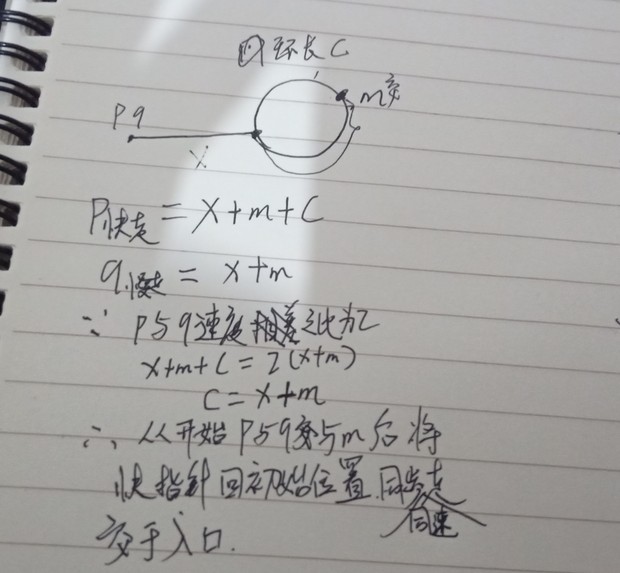 环长C
m交
P q
X
P快走 = X+m+C
q慢走 = x+m
∵ P与q速度之比为2
x+m+C = 2(x+m)
C = x+m
∴ 从开始P与q交与m后将
快指针回初始位置.同步走
同速
交于入口.